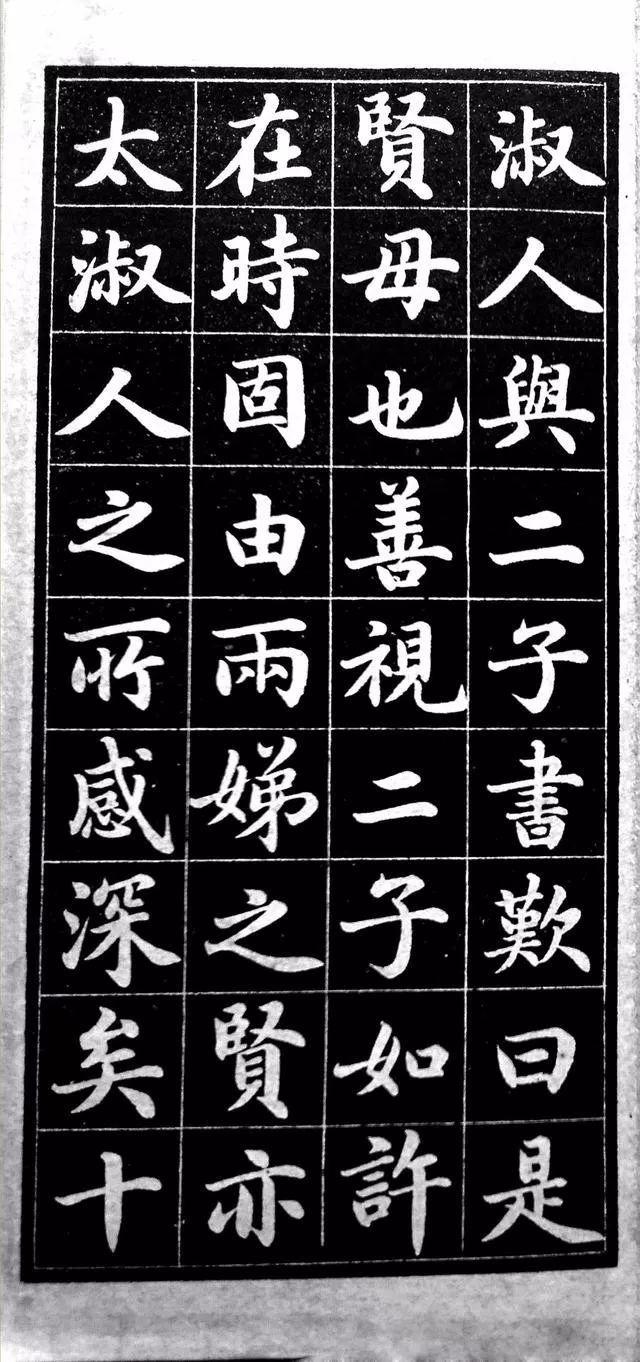 淑人與二子書歎曰是
賢母也善視二子如許
在時固由兩娣之賢亦
太淑人之所感深矣十